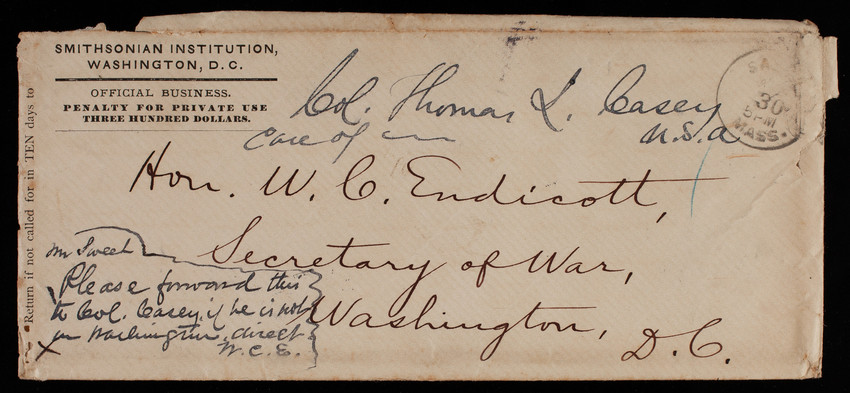 SMITHSONIAN INSTITUTION,
WASHINGTON, D.C.
OFFICIAL BUSINESS.
PENALTY FOR PRIVATE USE
THREE HUNDRED DOLLARS.
Return if not called for in TEN days to
30
5 PM
MASS.
Col. Thomas L. Casey
U.S.A
Care of
Hon. W. C. Endicott,
Secretary of War,
Washington,
D.C.
Mr Sweet
Please forward this
to Col. Casey, if he is not
in Washington, direct
W.C.E.
X